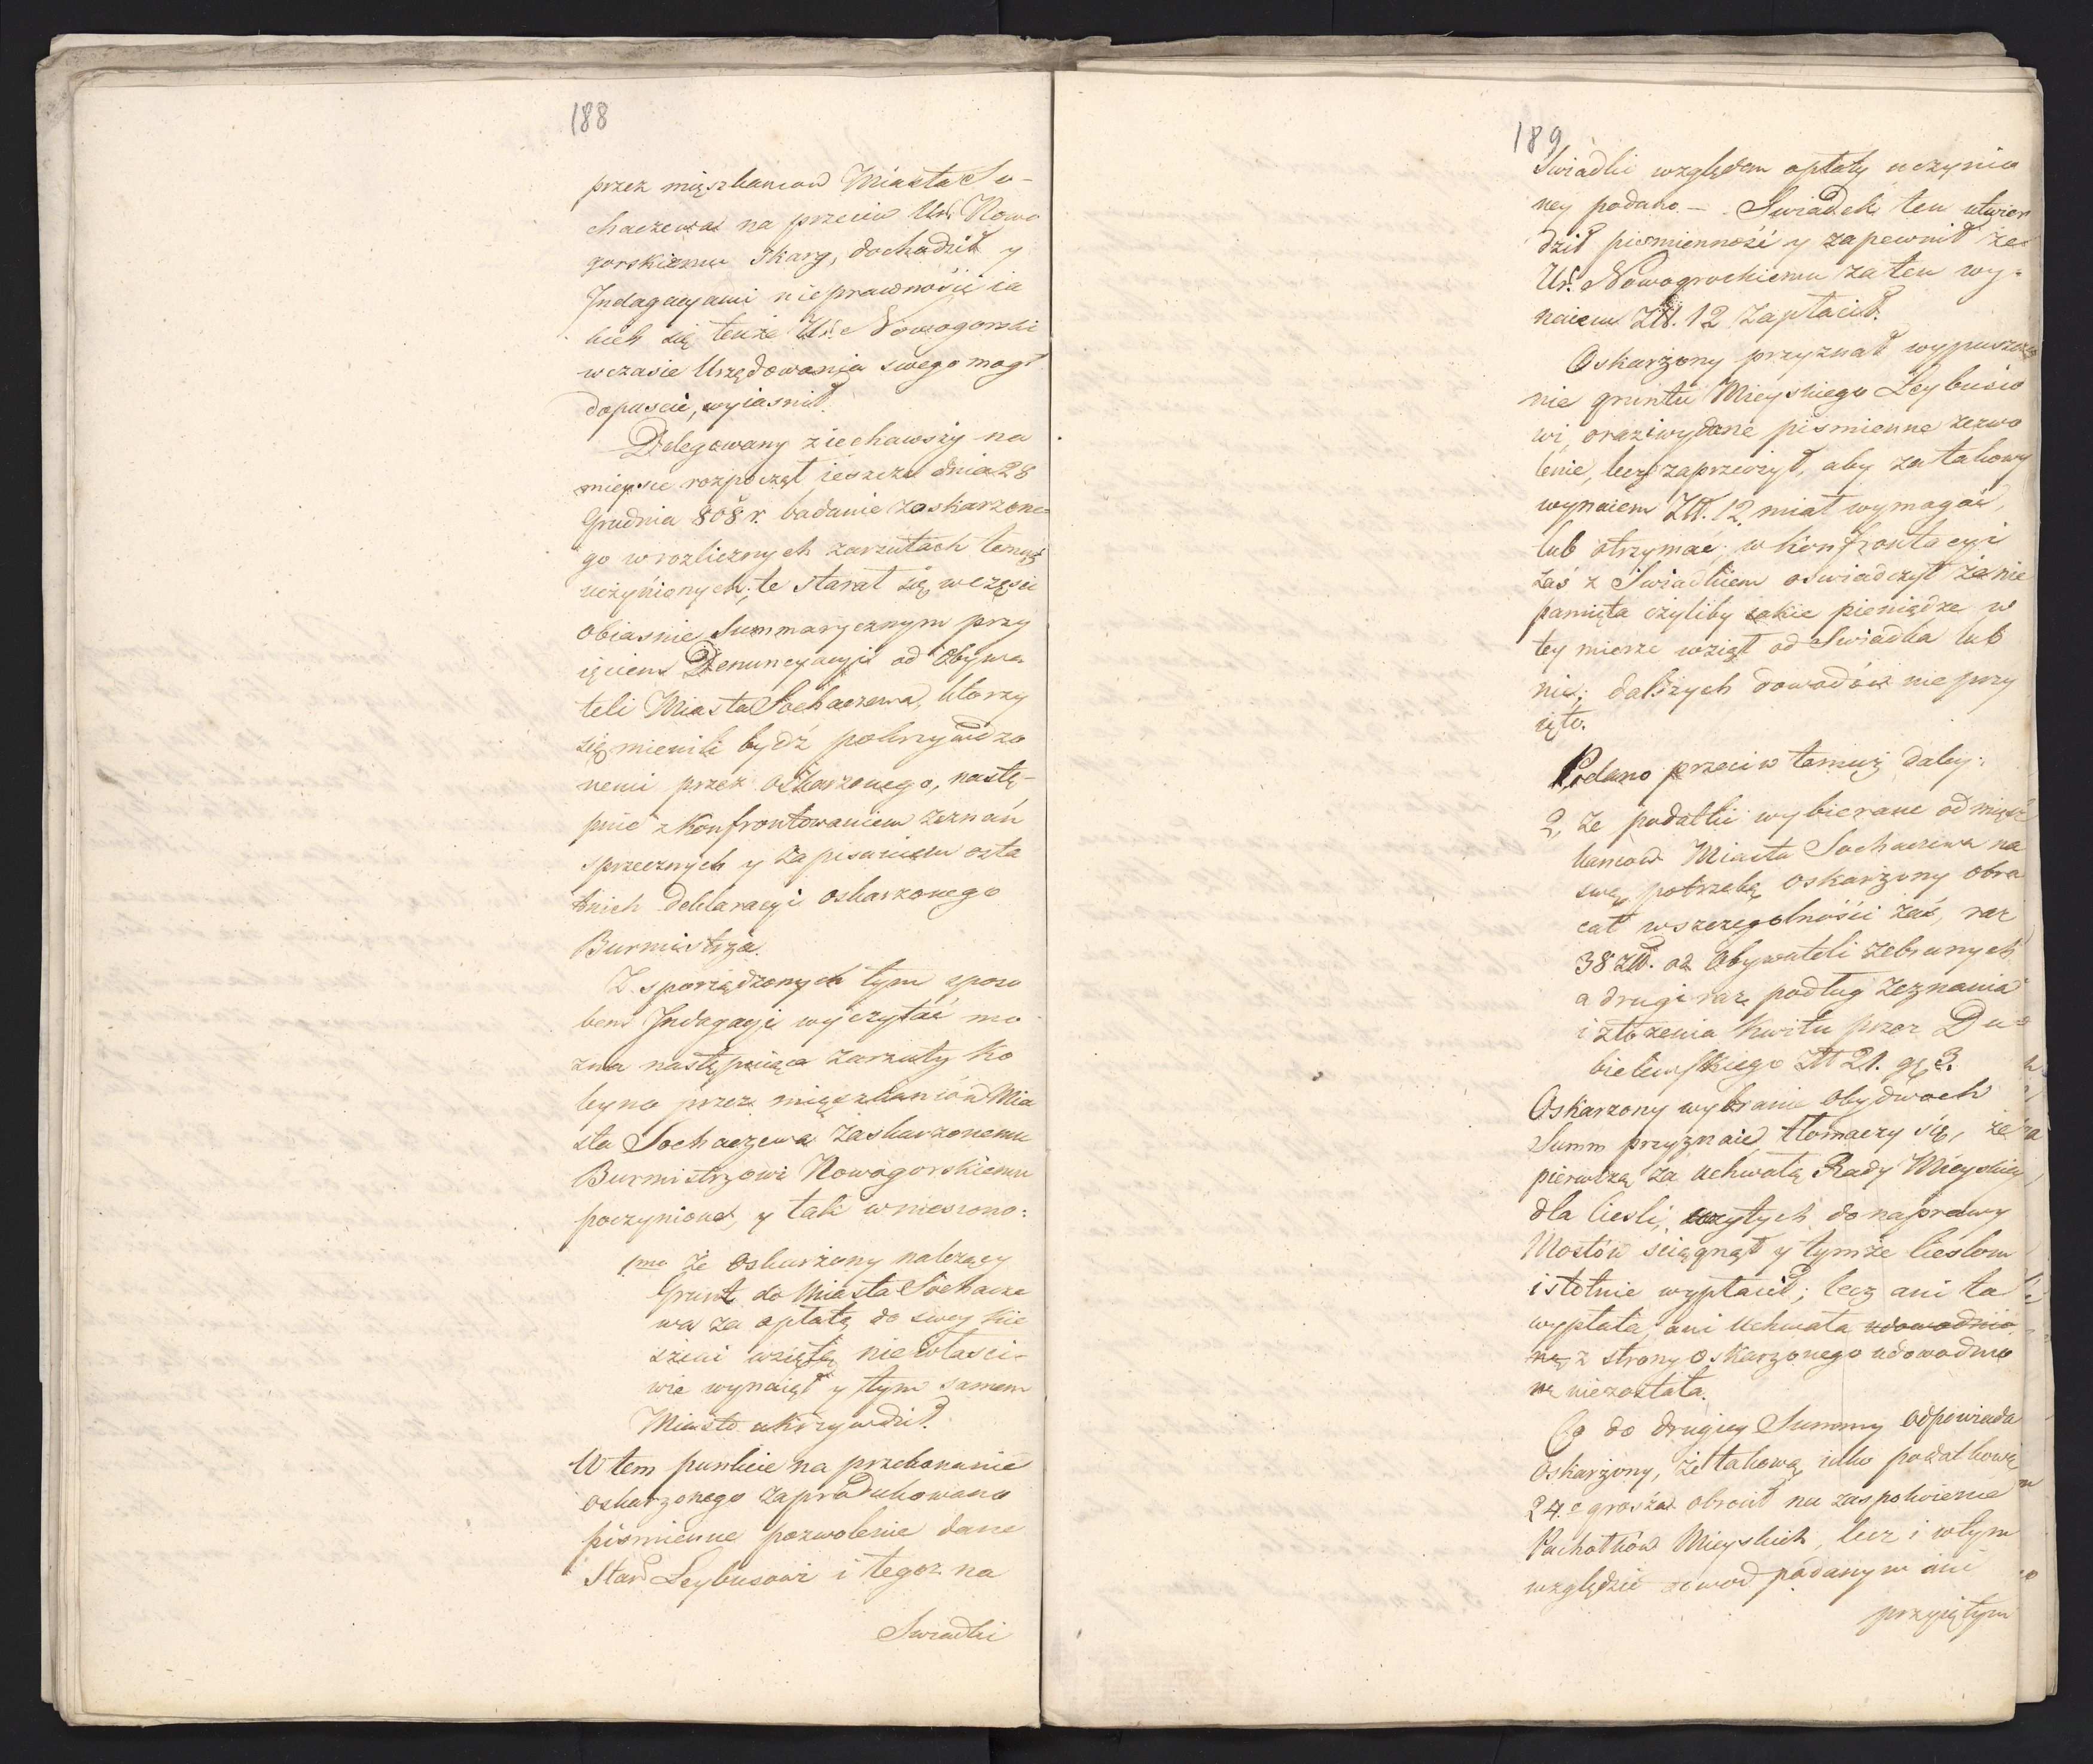 188
przez mięszkancow Miasta So-
chaczewa na przeciw Ur. Nowo
gorskiemu skarg, dochodził y
Indagacyami nieprawności ia
kich się tenże Ur. Nowogorski
wczasie Urzędowania swego mogł
dopuscić, wyiasnił.
Delegowany ziechawszy na
mieysce rozpoczął ieszcze dnia 28
Grudnia 808 r. badanie zaskarzone=
go w rozlicznych zarzutach temuż
uczynionych; te starał się wczęsci
obiasnić Summarycznym przy
ięciem Denuncyacyi od Obywa
teli Miasta Sochaczewa, ktorzy
się mienili bydź pokrzywdzo
nemi przez oskarzonego, nastę-
pnie z Konfrontowaniem zeznań
sprzecznych y zapisaniem osta
tnich deklaracyi oskarzonego
Burmistrza.
Z sporządzonych tym sposo
bem Indagacyi wyczytać mo
zna następuiące zarzuty ko
leyno przez mięszkancow Mia
sta Sochaczewa zaskarzonemu
Burmistrzowi Nowogorskiemu
poczynione, y tak wniesiono:
1mo Że Oskarżony nalezący
Grunt do Miasta Sochacze
wa za opłatą do swey kie
szeni wziętą niewłasci-
wie wynaiął y tym samem
Miasto ukrzywdził.
W tem punkcie na przekonanie
oskarzonego zaprodukowano
pismienne pozwolenie dane
Star. Leybusowi i tegoz na
Swiadki
189
Swiadki względem opłaty uczynio
ney podano — Swiadek ten utwier
dził piśmienność y zapewnił że
Ur. Nowogrockiemu za ten wy=
naiem Złł. 12 zapłacił.
Oskarżony przyznał wypuszcze
nie gruntu Mieyskiego Leybusio
wi, oraz i wydane pismienne zezwo
lenie, lecz zaprzeczył, aby za takowy
wynaiem Złł. 12. miał wymagać,
lub otrzymać; w konfrontacyi
zaś z Swiadkiem oswiadczył że nie
pamięta czyliby iakie pieniądze w
tey mierze wziął od Swiadka lub
nie; dalszych dowodów nie przy
ięto.
Podano przeciw temuż daley:
2, że podatki wybierane od mięsz
kancow Miasta Sochaczewa na
swą potrzebę oskarżony obra
cał wszczegolności zaś, raz
38 Złł. od Obywateli zebranych
a drugi raz podług zeznania
i złożenia kwitu przez Du=
bielewskiego Złł 21. gr 3.
Oskarzony wybranie obydwoch
Summ przyznaie, tłomaczy się, że
pierwszą za uchwałą Rady Mieyskiey
dla Ciesli, uzytych do naprawy
Mostów sciągnął y tymże Cieslom
istotnie wypłacił; lecz ani ta
wypłata, ani uchwała udowodnio
ną z strony oskarzonego udowodnio
ne niezostała.
Co do drugiey Summy odpowiada
Oskarżony, że takową iako podatkową
24.o grosza obrocił na zaspokoienie
Pachołków Mieyskich, lecz i wtym
względzie dowod podanym ani
przyiętym